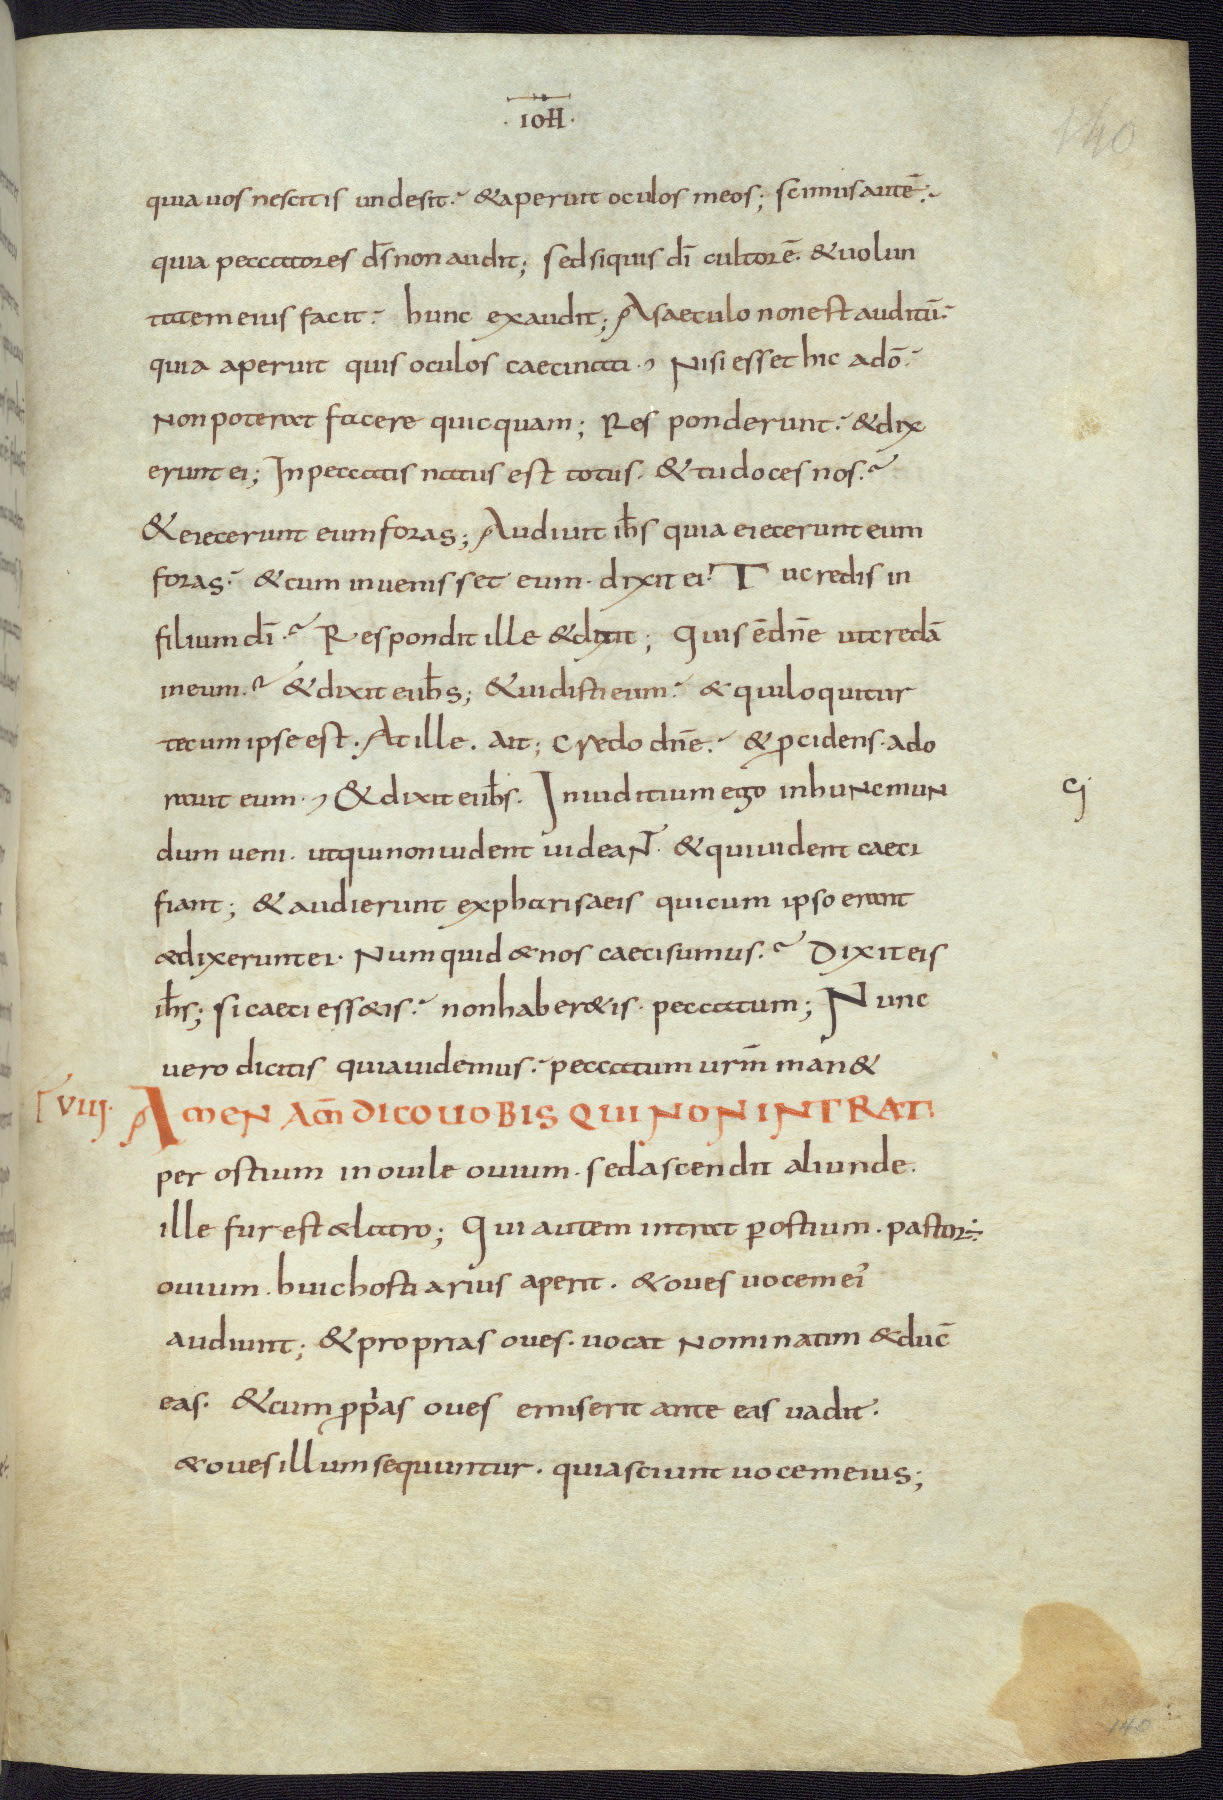 · IOH̅ ·
140
quia uos nescitis unde sit. & aperuit oculos meos; scimus autē.
quia peccatores d̅s non audit; sed si quis d̅i cultor ē. & uolun
tatem eius facit. hunc exaudit; A saeculo non est auditū.
quia aperuit quis oculos caeci nati. Nisi esset hic a dō.
Non poterat facere quicquam; Responderunt. & dix
erunt ei; In peccatis natus est totus. & tu doces nos.
& eiecerunt eum foras; Audiuit ih̅s quia eiecerunt eum
foras. & cum inuenisset eum. dixit ei. Tu credis in
filium d̅i. Respondit ille & dixit; Quis ē dn̅e ut credā
in eum. & dixit ei ih̅s; & uidisti eum. & qui loquitur
tecum ipse est. At ille. ait; Credo dn̅e. & pcidens. ado
rauit eum. & dixit ei ih̅s. In iuditium ego in huNc muN
dum ueni. ut qui non uident uideaN̅T. & qui uident caeci
fiant; & audierunt ex pharisaeis qui cum ipso erant
& dixerunt ei. Numquid & nos caeci sumus. Dixit eis
ih̅s; si caeci ess&is. non haber&is. peccatum; Nunc
cj
uero dicitis quia uidemus. peccatum urm̅ man&
VIIJ. AMEN AM̅ DICO UOBIS QUI NON INTRAT
per ostium in ouile ouium. sed ascendit aliunde.
ille fur est & latro; Qui autem intrat p ostium. pastor
ouium. huic hostiarius aperit. & oues uocem ei'
audiunt; & proprias oues. uocat Nominatim & duc̅
eas. & cum pp̅as oues emiserit ante eas uadit.
& oues illum sequuntur. quia sciunt uocem eius;
140